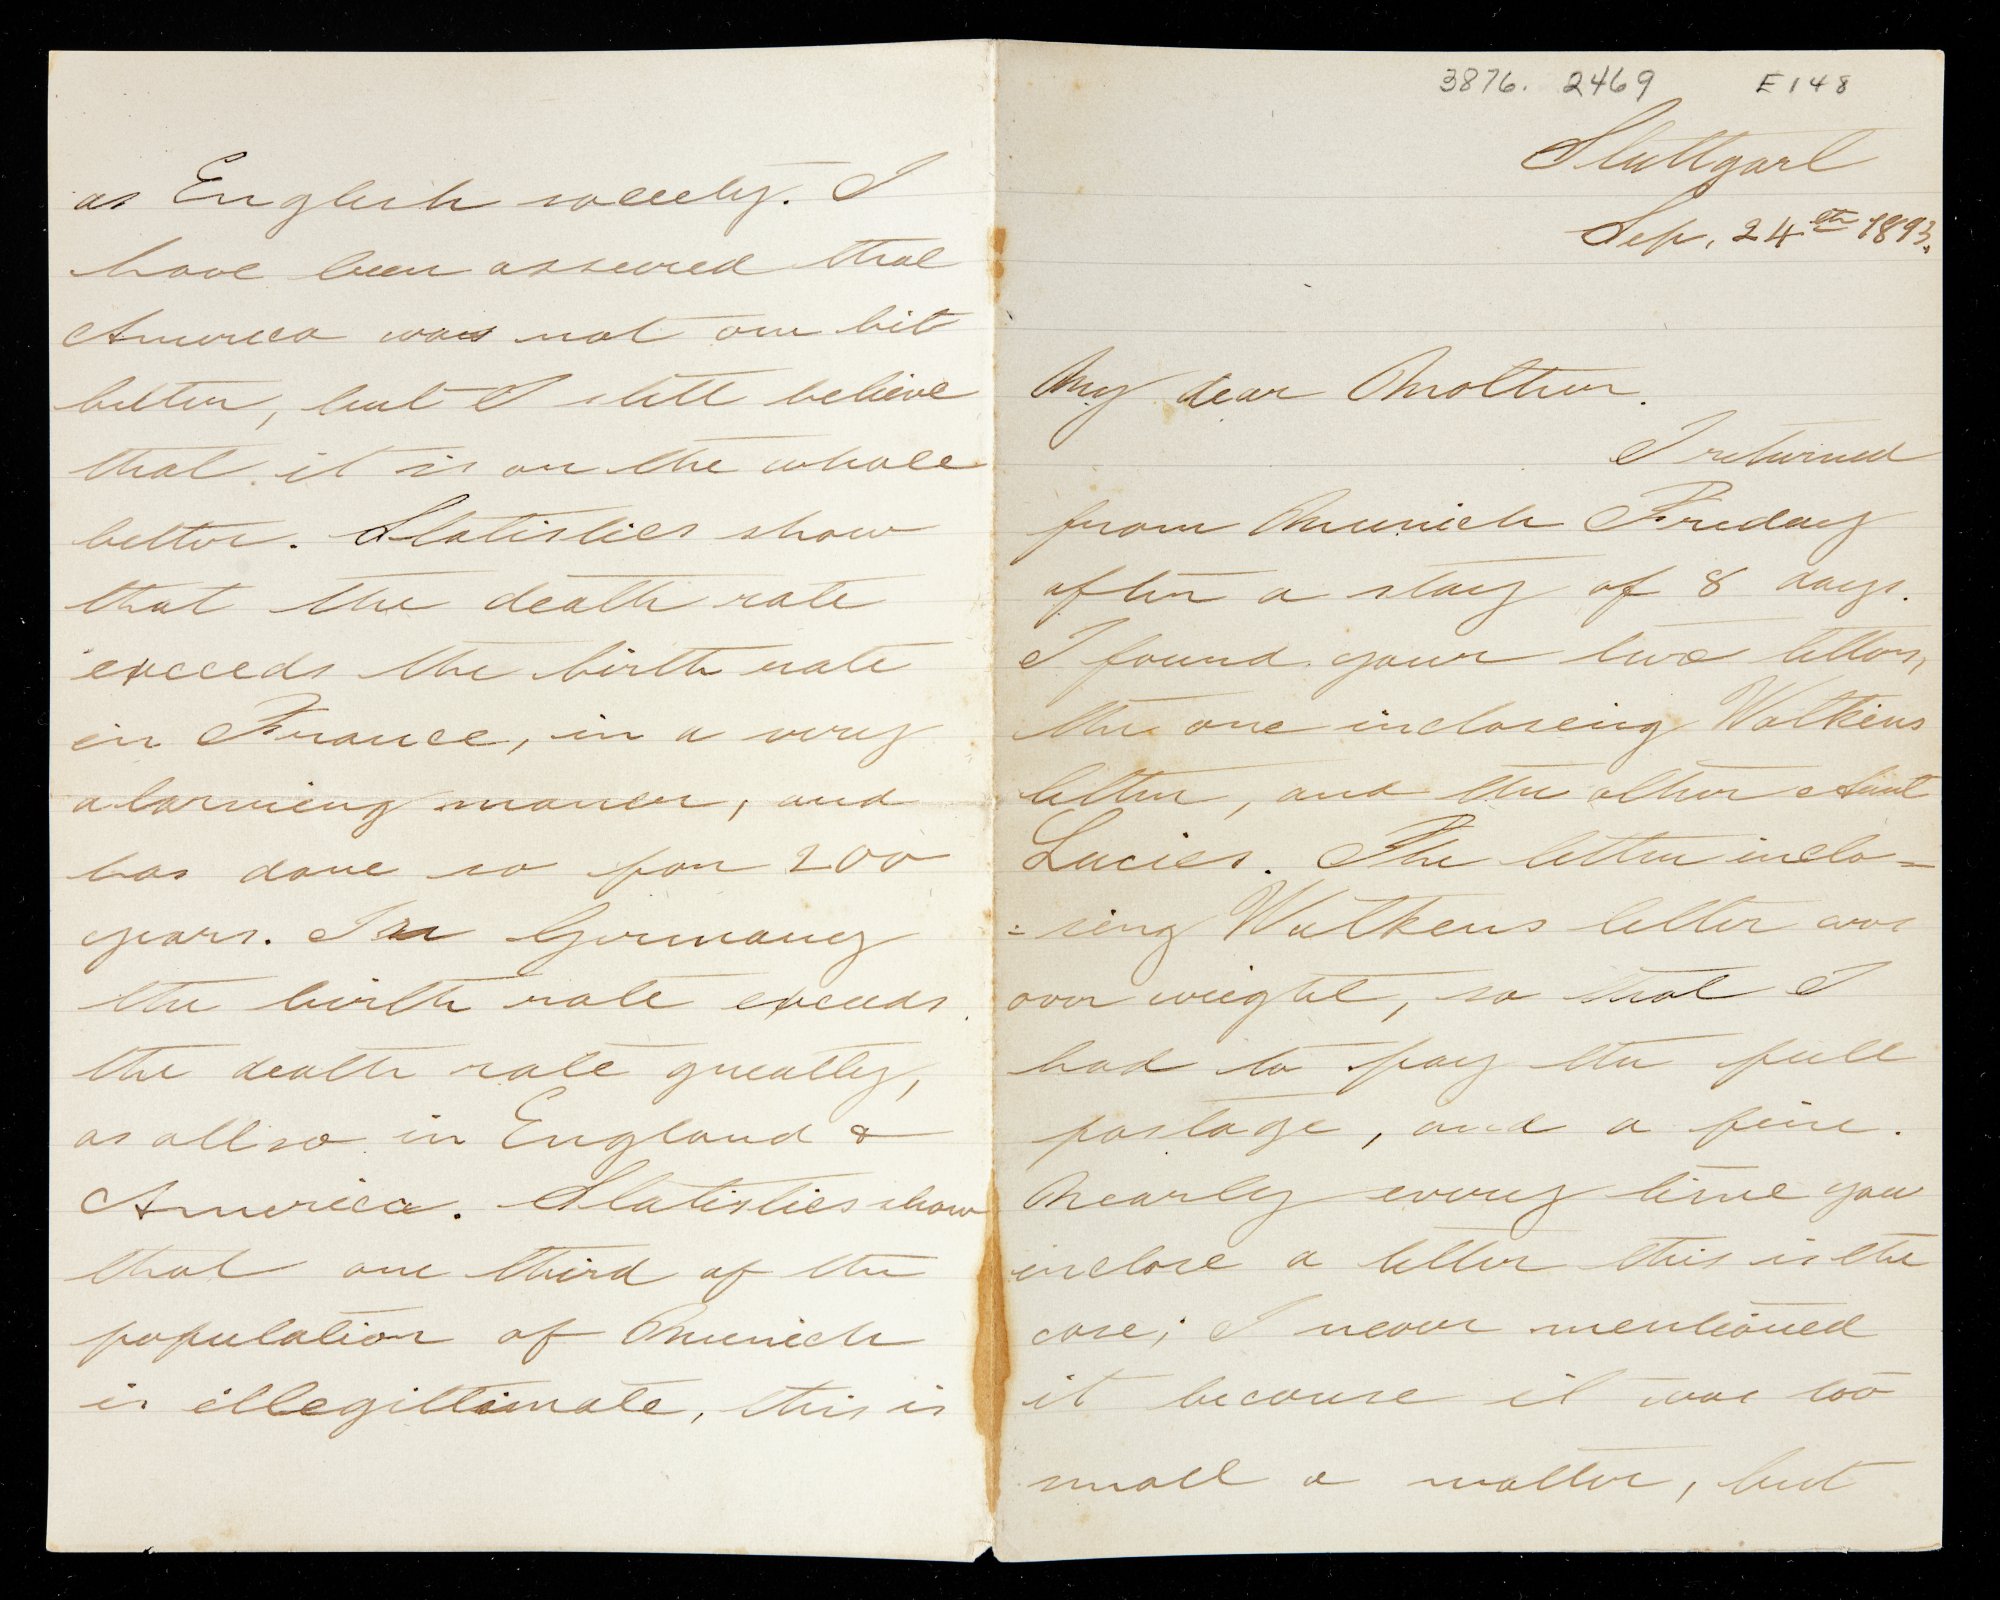 3876. 2469 E148
Stuttgart
Sep. 24th 1893.
My dear Mother.
I returned
from Munich Friday
after a stay of 8 days.
I found your two letters,
the one inclosing Watkins
letter, and the other Aunt
Lucies. The letter inclo=
=sing Watkens letter was
over weight, so that I
had to pay the full
postage, and a fine.
Nearly every time you
inclose a letter this is the
case; I never mentioned
it because it was too
small a matter, but
as English society. I
have been assured that
America was not one bit
better, but I still believe
that it is on the whole
better. Statistics show
that the death rate
exceeds the birth rate
in France, in a very
alarming maner, and
has done so for 200
years. In Germany
the birth rate exceeds
the death rate greatly,
as allso in England &
America. Statistics show
that one third of the
population of Munich
is illegittimate, this is